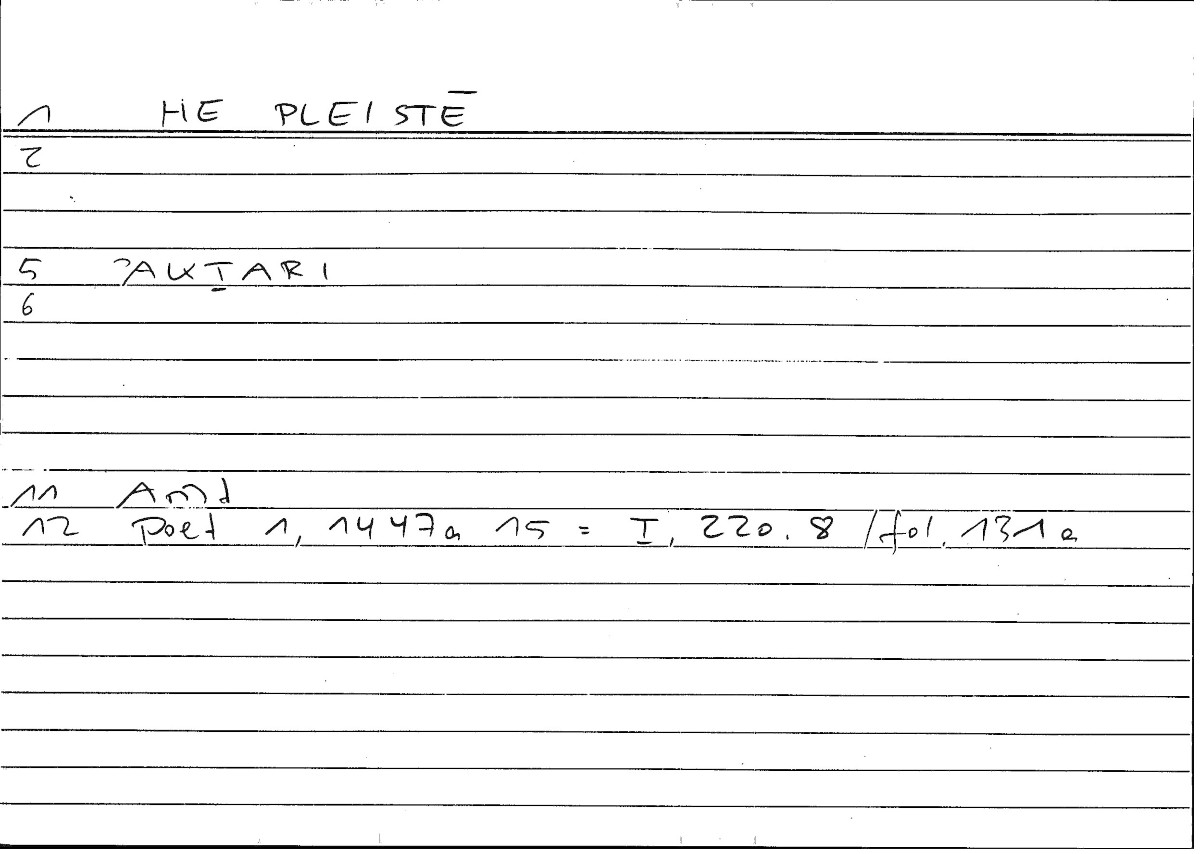 1 HE PLEISTĒ
2
5 ʾAKṮARI
6
11 Arnd
12 Poet 1, 1447a 15 = I, 220.8 / fol. 131a